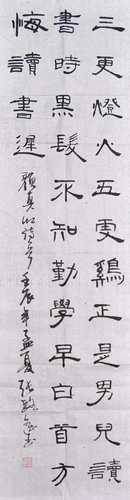 三更燈火五更鷄正是男兒讀
書時黑髮不知勤學早白首方
悔讀書遲
顏真卿詩句壬辰年孟夏張